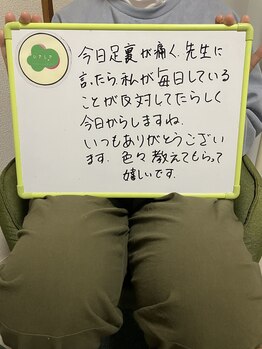 今日足裏が痛く、先生に
言ったら私が毎日している
ことが反対してたらしく
今日からしますね。
いつもありがとうござい
ます。色々教えてもらって
嬉しいです。